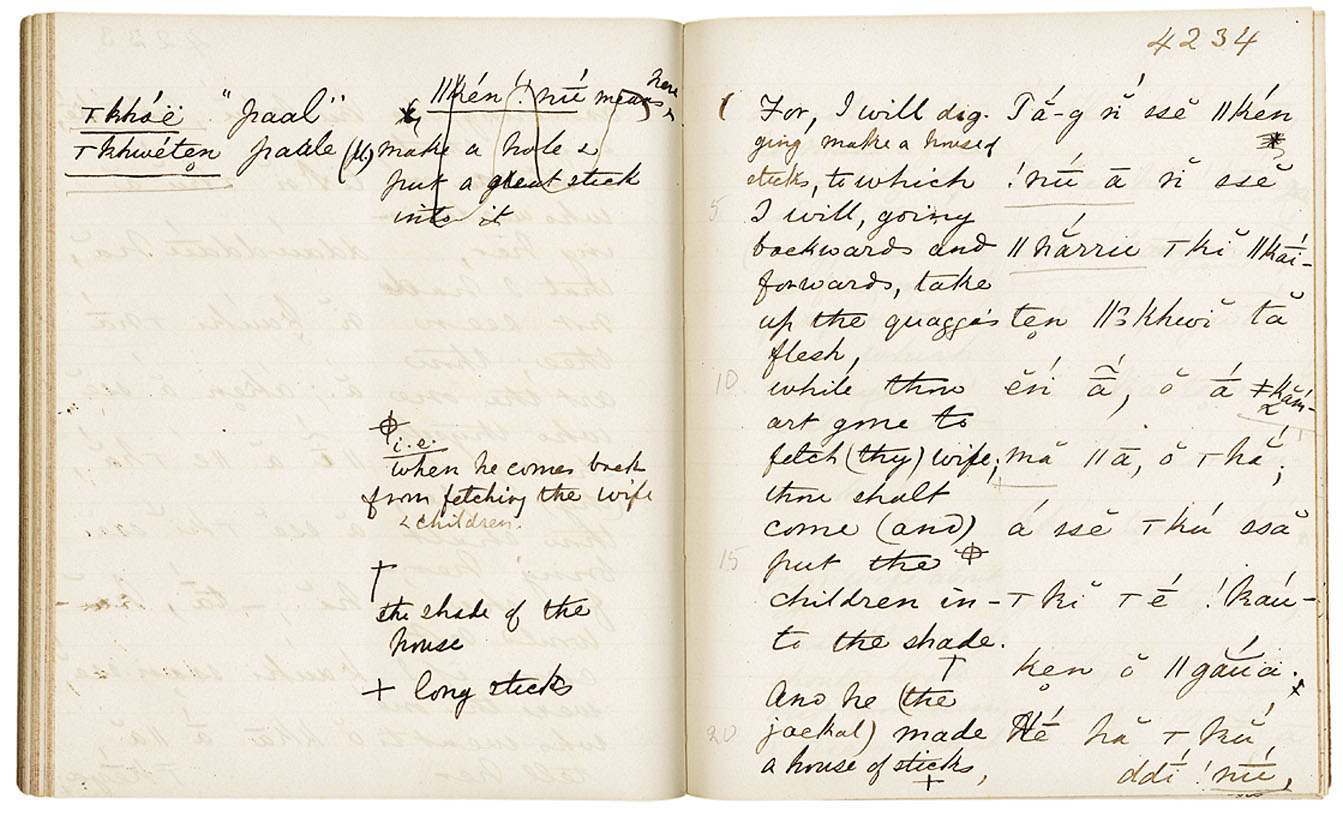 4234
ꞇkhóë "paal"
ꞇkhwétẹn paale (pl.)
‖kén !nū́ means here
make a hole &
put a great stick
into it
i.e.
when he comes back
from fetching the wife
& children.
†
the shade of the
house
+ long sticks
For, I will dig- Tā́-g ń̆ ssĕ ‖kén
ging make a house of
sticks, to which !nū́ ā ń̆ ssĕ
5 I will, going
backwards and ‖hắrriē ꞇkĭ ‖kā́i-
forwards, take
up the quagga's tẹn
flesh,
10 while thou
art gone to
fetch (thy) wife; mā̆ ‖ā, ŏ ꞇhắ;
thou shalt
come (and) á ssĕ ꞇkú ssă
15 put the
children in- ꞇkĭ ꞇé !káu-
to the shade. kẹn ŏ ‖gắuä.
†
And he (the
20 jackal) made Hé hă ꞇkú,
a house of sticks, ddí !nū́,
+